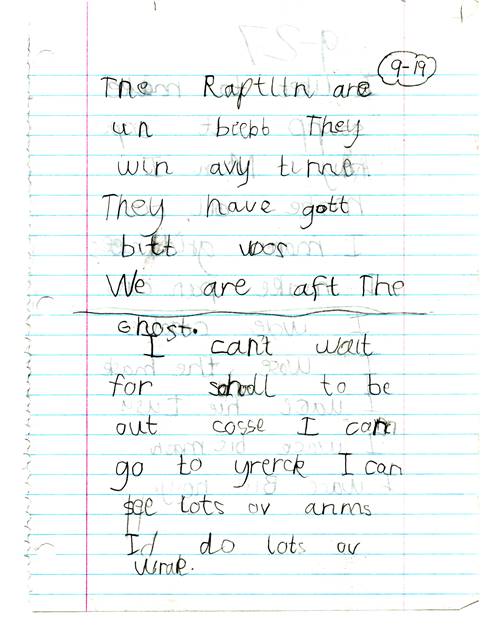 9-19
The Raptltn are
un btebt They
win avy time.
They have gott
bitt woos
We are aft The
Ghost.
I can't wait
for scholl to be
out cosse I can
go to yrerck I can
see lots ov anms
I'd do lots ov
wrak.